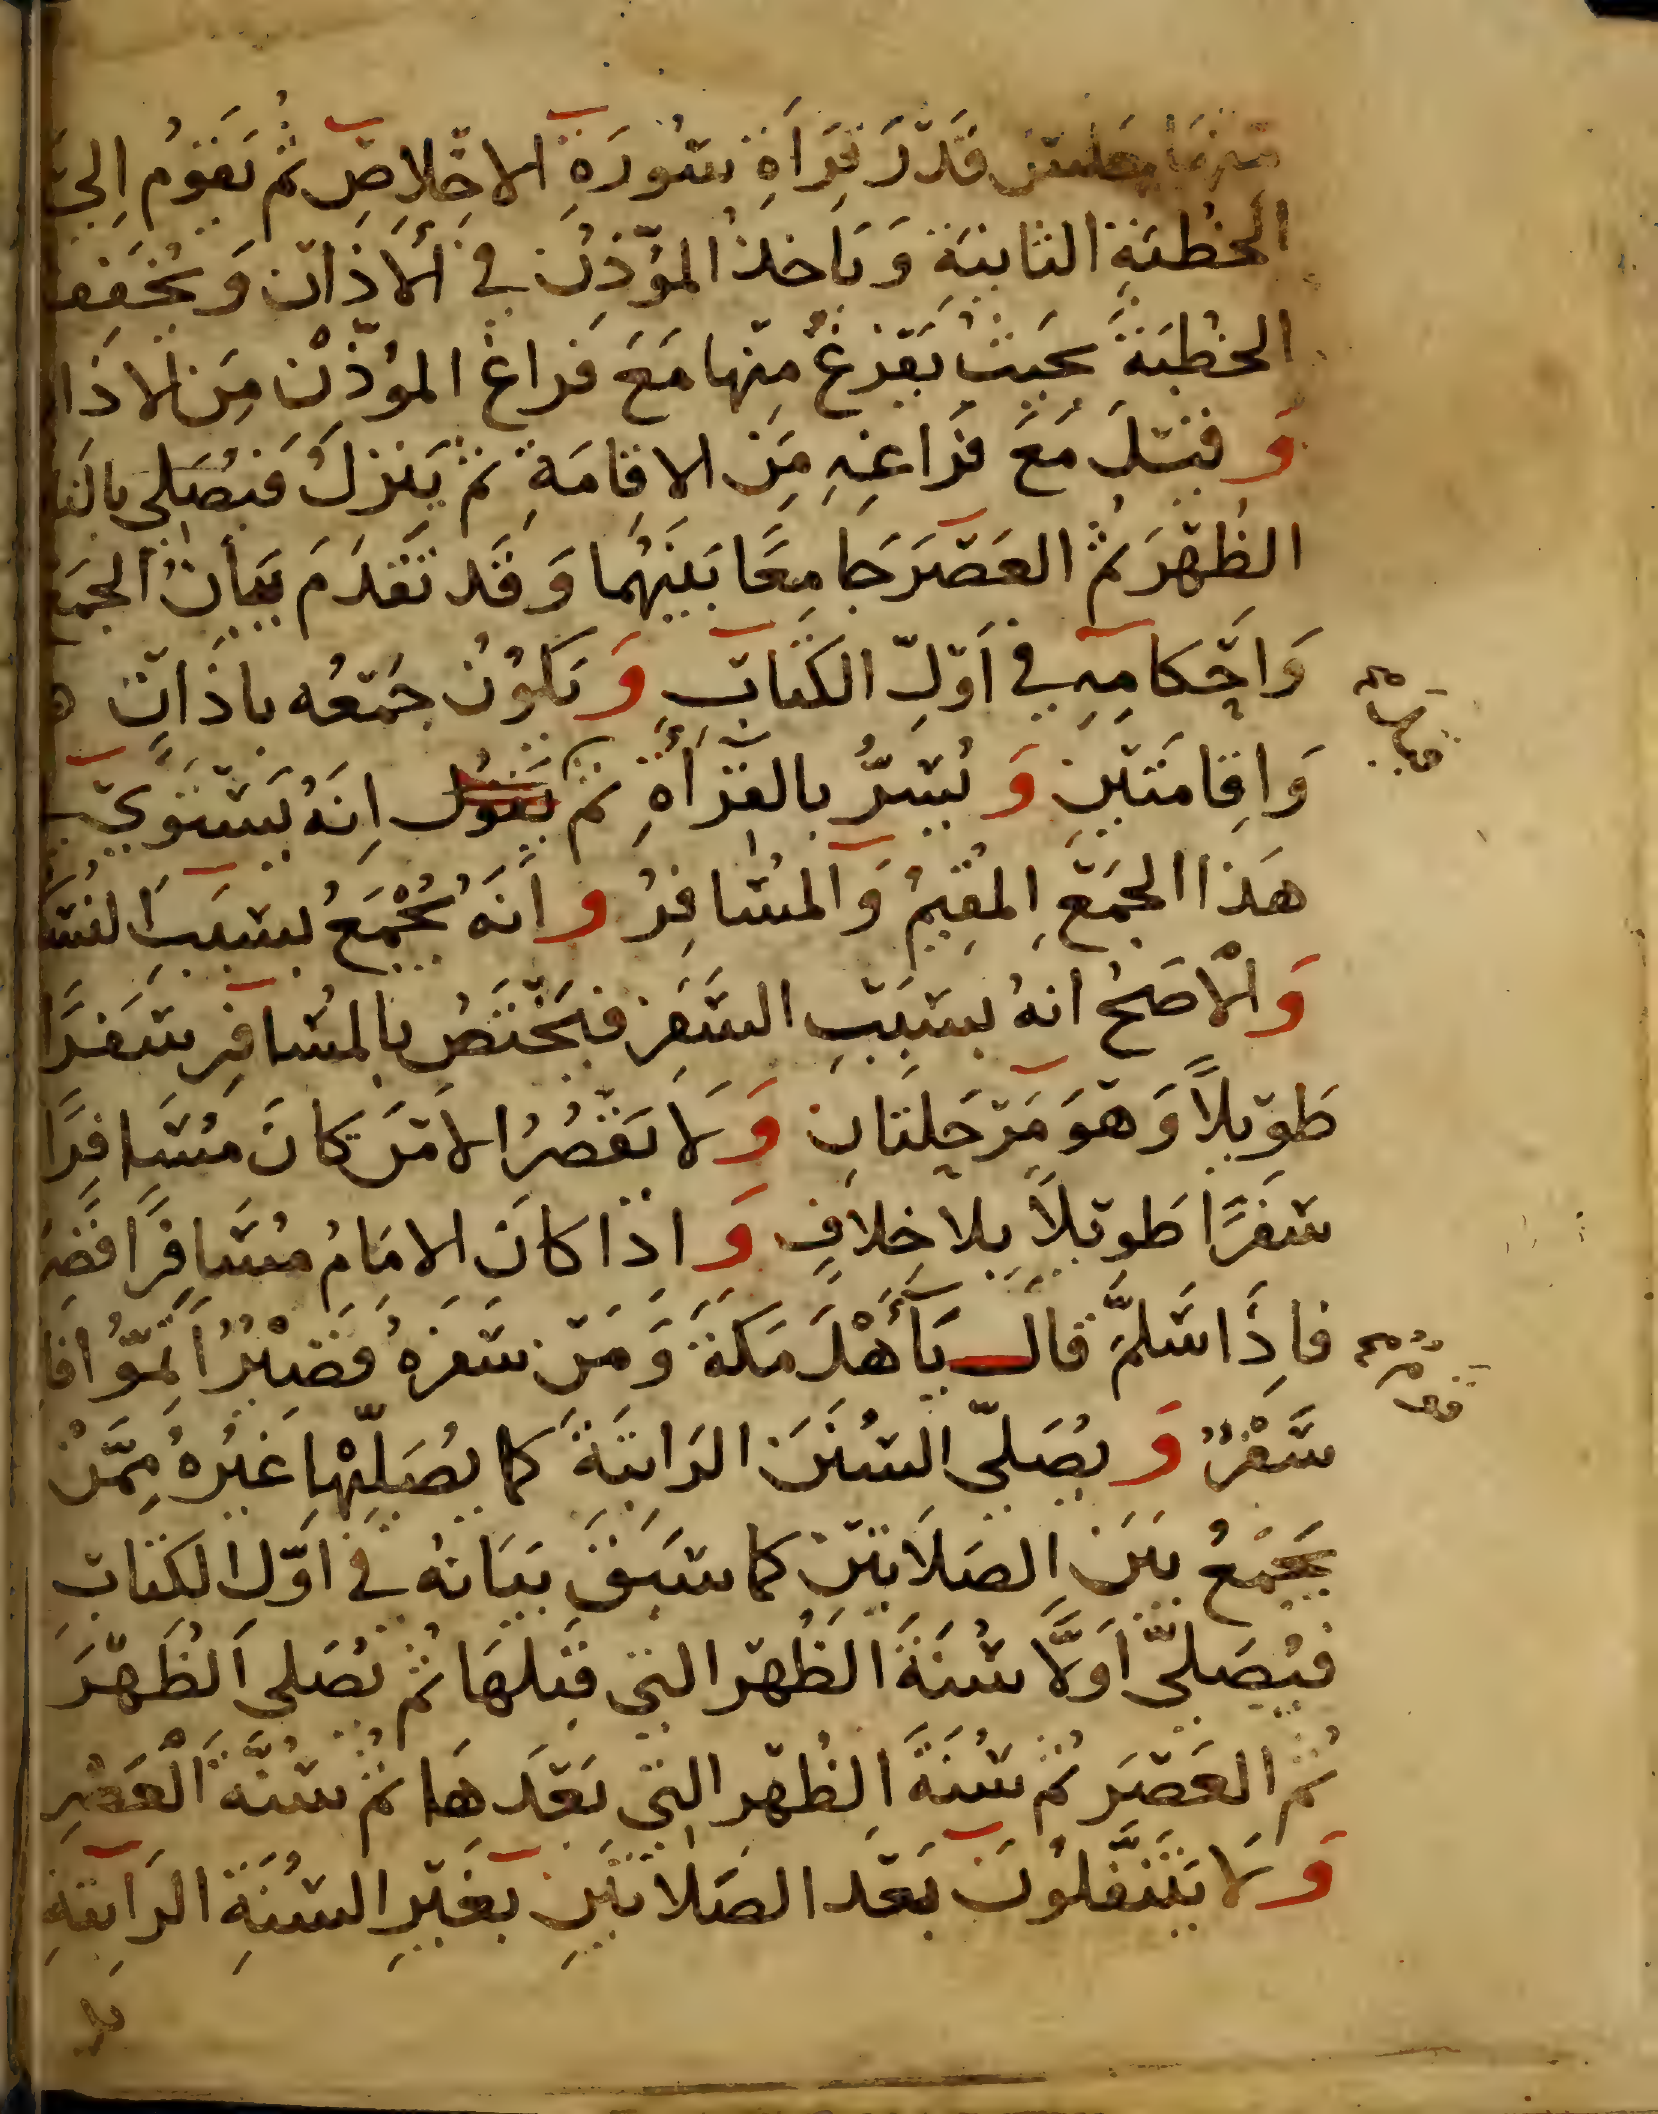 منها جلس قَدْرَ قِرَاَةِ سُورَةِ الاخْلاصِ ثم يَقومُ اِلى
الخُطبَةِ الثانيَة وَيَاخذُ المؤذِن في الأَذانِ وَيُخَفِف
الخُطبَةَ بحَيث يَفرغُ منها مَعَ فَراغ المؤذن مِن الاذَا
وَقيلَ مَعَ فَرَاغِهِ مِن الاقامَةِ ثم يَنزِلُ فَيُصَلي بالنا
الظُهْرَ ثُم العَصْرَ جَامِعًا بَينَهُما وَقَد تَقَدَمَ بَيَانُ الجمَع
وَاحْكامِهِ في اَوّلِ الكتابِ وَيَكوُنُ جَمْعُه باذَانٍ
وَاِقامَتَيْنِ وَيُسِرُّ بالقرَأَةِ ثم يَقوُل اِنَهُ يَسْتَوي
هَذا الجَمْعِ المُقِيمُ وَالمسُافِرُ وانَهُ يُجْمَعُ بسَبَبِ النُسُك
وَالأصَحُ انهُ بسَبَبِ السَفَرِ فيَخْتَصُ بالمسُافِرِ سَفَرًا
طَوِيلاً وَهوَ مَرْحَلتانِ وَلَا يَقْصُرُ الا مَن كانَ مسَافِرًا
سَفَرًا طَويلاً بلا خِلافٍ وَاذا كانَ الامَامُ مسَافِرًا قصَرَ
فاِذَا سَلَّمَ قالَ يَآأَهْلَ مَكَةَ وَمَنْ سَفَرَهُ قَصِيْرٌ اَتِمّوُا فاِ
سَفْرٌ وَيُصَلّي السُنَنَ الرَاتبَةَ كما يُصَلِيْها غَيْرُهُ مِمَّنْ
يجمَعُ بيَن الصَلَاتينِ كما سَبَقَ بَيَانهُ في اوّل الكتابِ
فيُصَلّي اَوَلاً سُنَةَ الظُهْر التي قَبلهَا ثُم يُصَلي الظُهْرَ
ثُم العَصْرَ ثُم سُنَةَ الظُهْر التي بَعْدَهَا ثم سُنَّةَ الْعَصْرِ
وَلَا يَتَنَفَّلُونَ بَعْدَ الصَلاتَيْنِ بغَيْرِ السُنَةِ الرَاتبَةِ